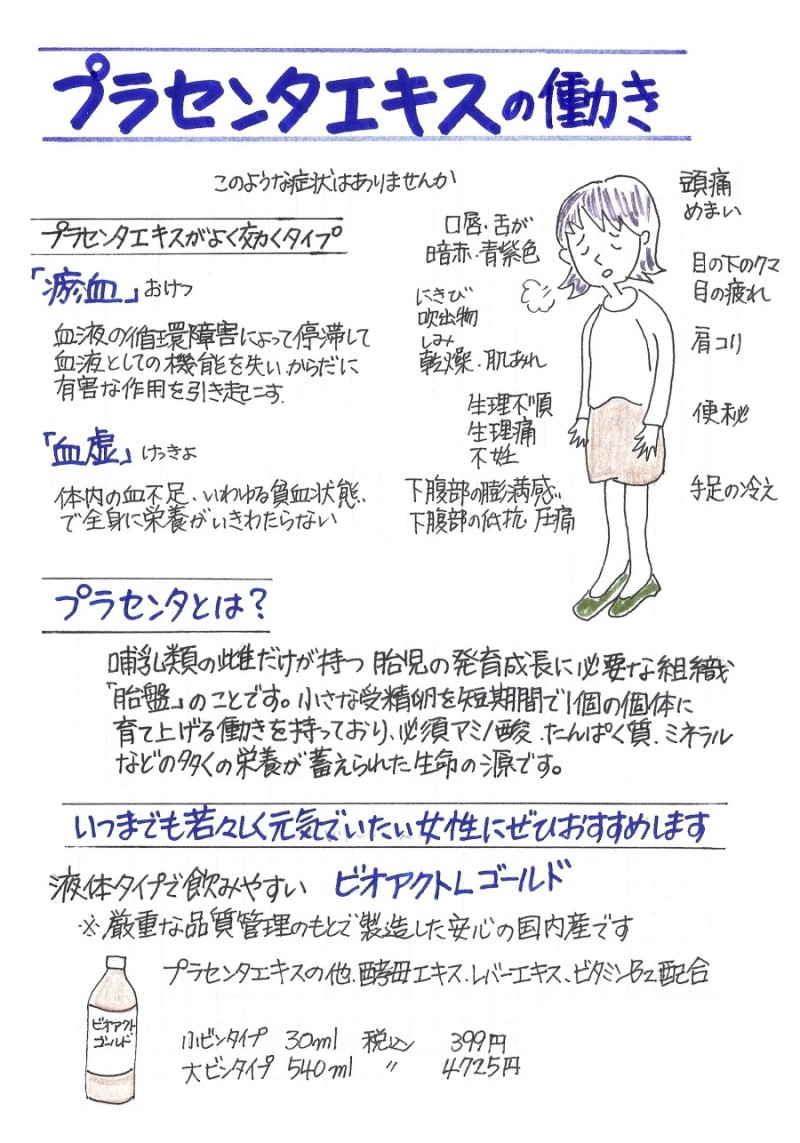 プラセンタエキスの働き
このような症状はありませんか
プラセンタエキスがよく効くタイプ
「瘀血」おけつ
血液の循環障害によって停滞して
血液としての機能を失い、からだに
有害な作用を引き起こす.
「血虚」けっきょ
体内の血不足、いわゆる貧血状態、
で全身に栄養がいきわたらない
口唇・舌が
暗赤・青紫色
にきび
吹出物
しみ
乾燥・肌あれ
生理不順
生理痛
不妊
下腹部の膨満感、
下腹部の低抗、圧痛
頭痛
めまい
目の下のクマ
目の疲れ
肩コリ
便秘
手足の冷え
プラセンタとは?
哺乳類の雌だけが持つ 胎児の発育成長に必要な組織
「胎盤」のことです。小さな受精卵を短期間で1個の個体に
育て上げる働きを持っており、必須アミノ酸、たんぱく質、ミネラル
などの多くの栄養が蓄えられた生命の源です。
いつまでも若々しく元気でいたい女性にぜひおすすめします
液体タイプで飲みやすい ビオアクトLゴールド
※厳重な品質管理のもとで製造した安心の国内産です
プラセンタエキスの他、酵母エキス、レバーエキス、ビタミンB2配合
ビオアクト
ゴールド
小ビンタイプ 30ml 税込 399円
大ビンタイプ 540ml 〃 4725円